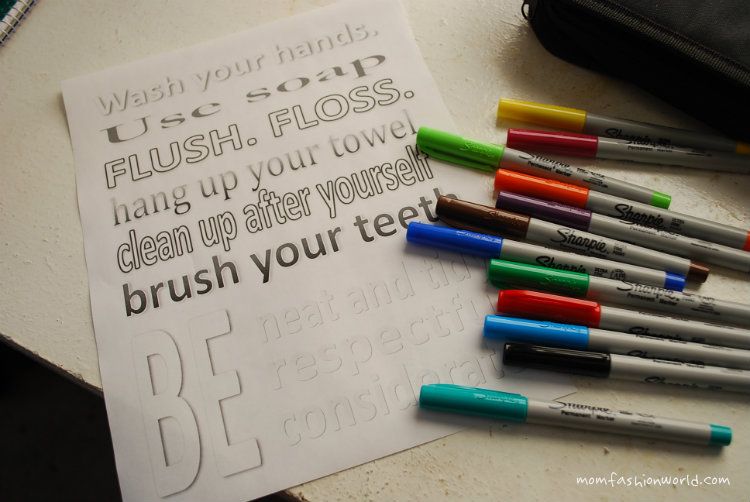 Wash your hands.
Use soap
FLUSH. FLOSS.
hang up your towel
clean up after yourself
brush your teeth
BE
neat and
respectf
considerat
Sharpie
Permanent Marker
Sharpie
Sharpie
Sharpie
Sharpie
Sharpie
Sharpie
Sharpie
Sharpie
Sharpie
Sharpie
Sharpie
momfashionworld.com